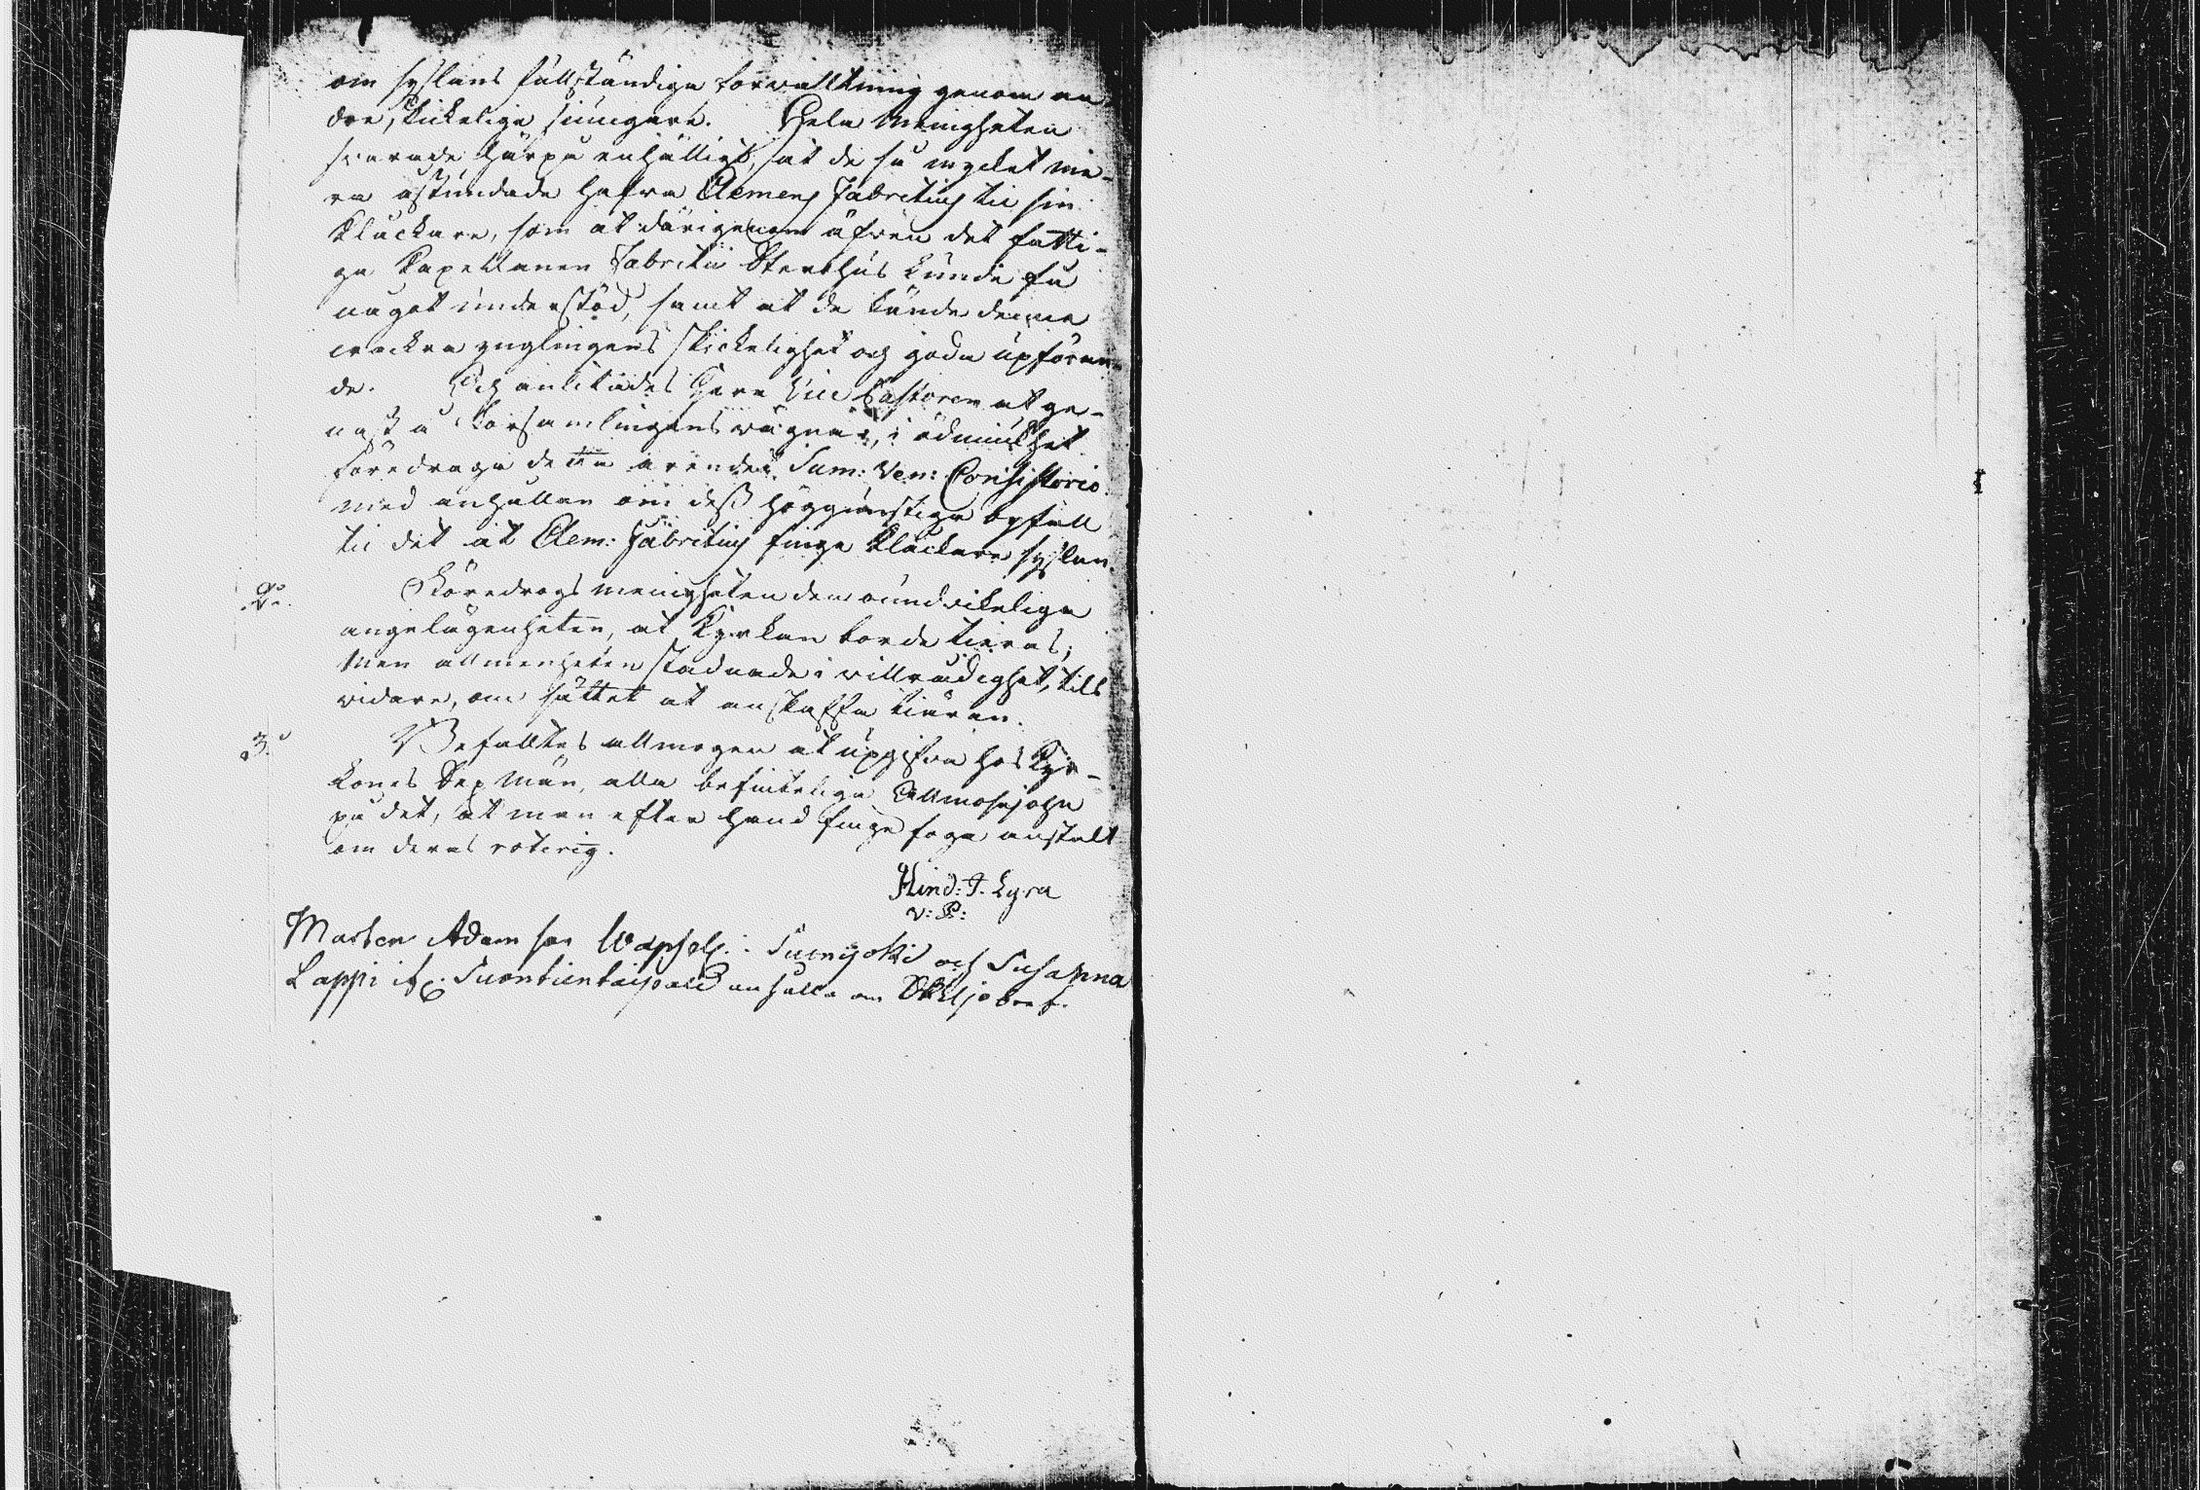 om syslans fullständiga förwalltning genom an
dre, skickelige siungare. Hela Menigheten
swarade härpå enhälligt, at de så mycket me-
ra åstundade hafwa Clemens Fabritius til sin
Kläckare, som at därigenom äfwen det fatti-
ga Kapellanen Fabritii Sterbhus kunde få
något understöd, samt at de kände denna
wackra ynglingens skickelighet och goda upföran-
de. Och anlitades Herr Vice Pastoren at ge-
nast å Församlingens wägnar, i ödmiukhet
föredraga detta ärende i Sum: Ven: Consistorio
med anhållan om dess höggunstiga byfall
til det at Clem: Fabritius finge Kläckare syslan.
2:o Föredrogs menigheten den oundwikeliga
angelägenheten, at Kyrkan borde tiäras;
Men allmenheten stadnade i willrådighet, tils
widare, om sättet at anskaffa tiäran.
3:o Befalltes allmogen at upgifwa hos Kyr-
kones Sex Män, alla befintelige Allmosehjon
på det, at man efter hand finge foga anstalt
om deras rotering.
Hind: J. Lyra
v: P:
Marten Adam son i Sumijoki och Susanna
Lappi if: Suontientaipale anhålla om Skiljobref.